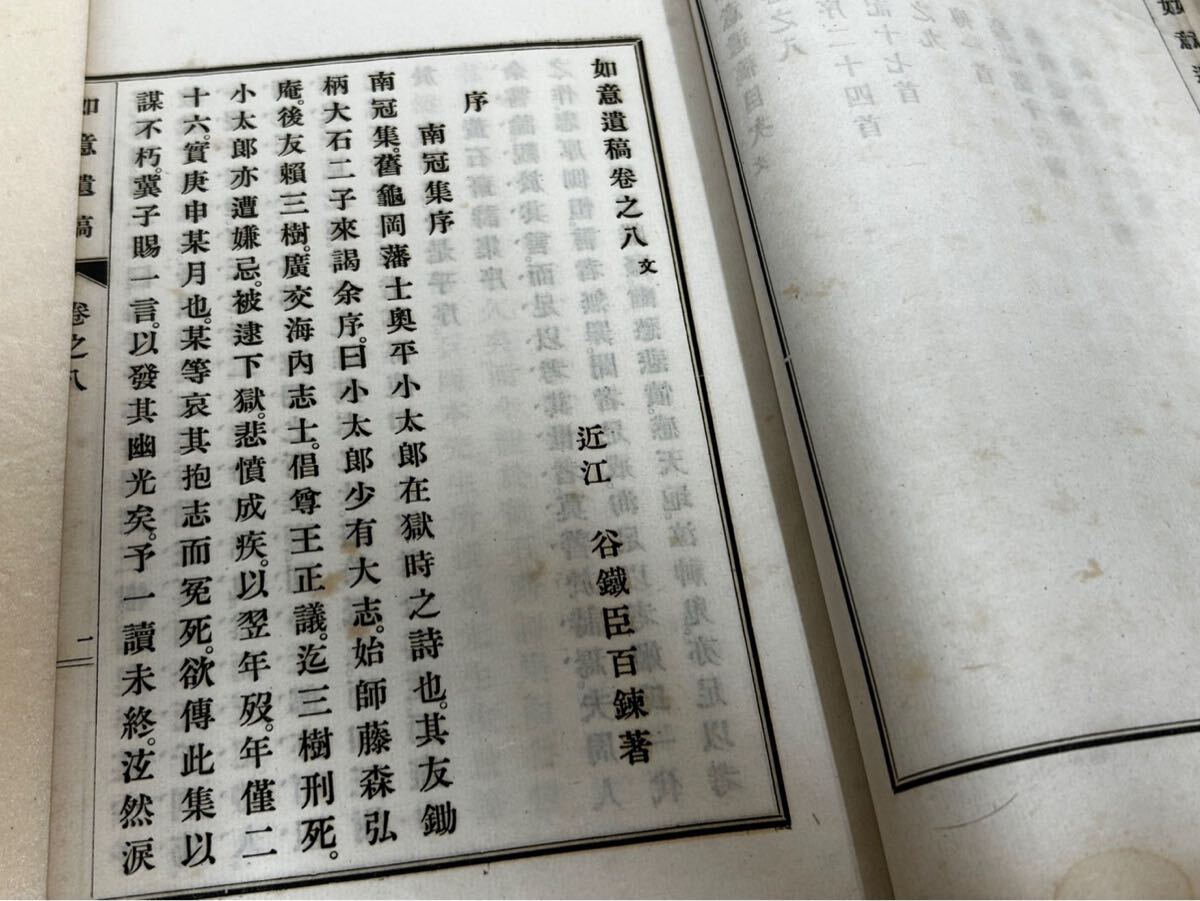 如意遺稿卷之八 文
近江 谷鐵臣百鍊著
序
南冠集序
南冠集。舊龜岡藩士奥平小太郎在獄時之詩也。其友鋤
柄大石二子來謁余序。曰小太郎少有大志。始師藤森弘
庵。後友賴三樹。廣交海内志士。倡尊王正議。迄三樹刑死。
小太郎亦遭嫌忌。被逮下獄。悲憤成疾。以翌年歿。年僅二
十六。實庚申某月也。某等哀其抱志而冤死。欲傳此集以
謀不朽。冀子賜一言。以發其幽光矣。予一讀未終。泫然涙
如意遺稿 卷之八 一
序二十四首
記十七首